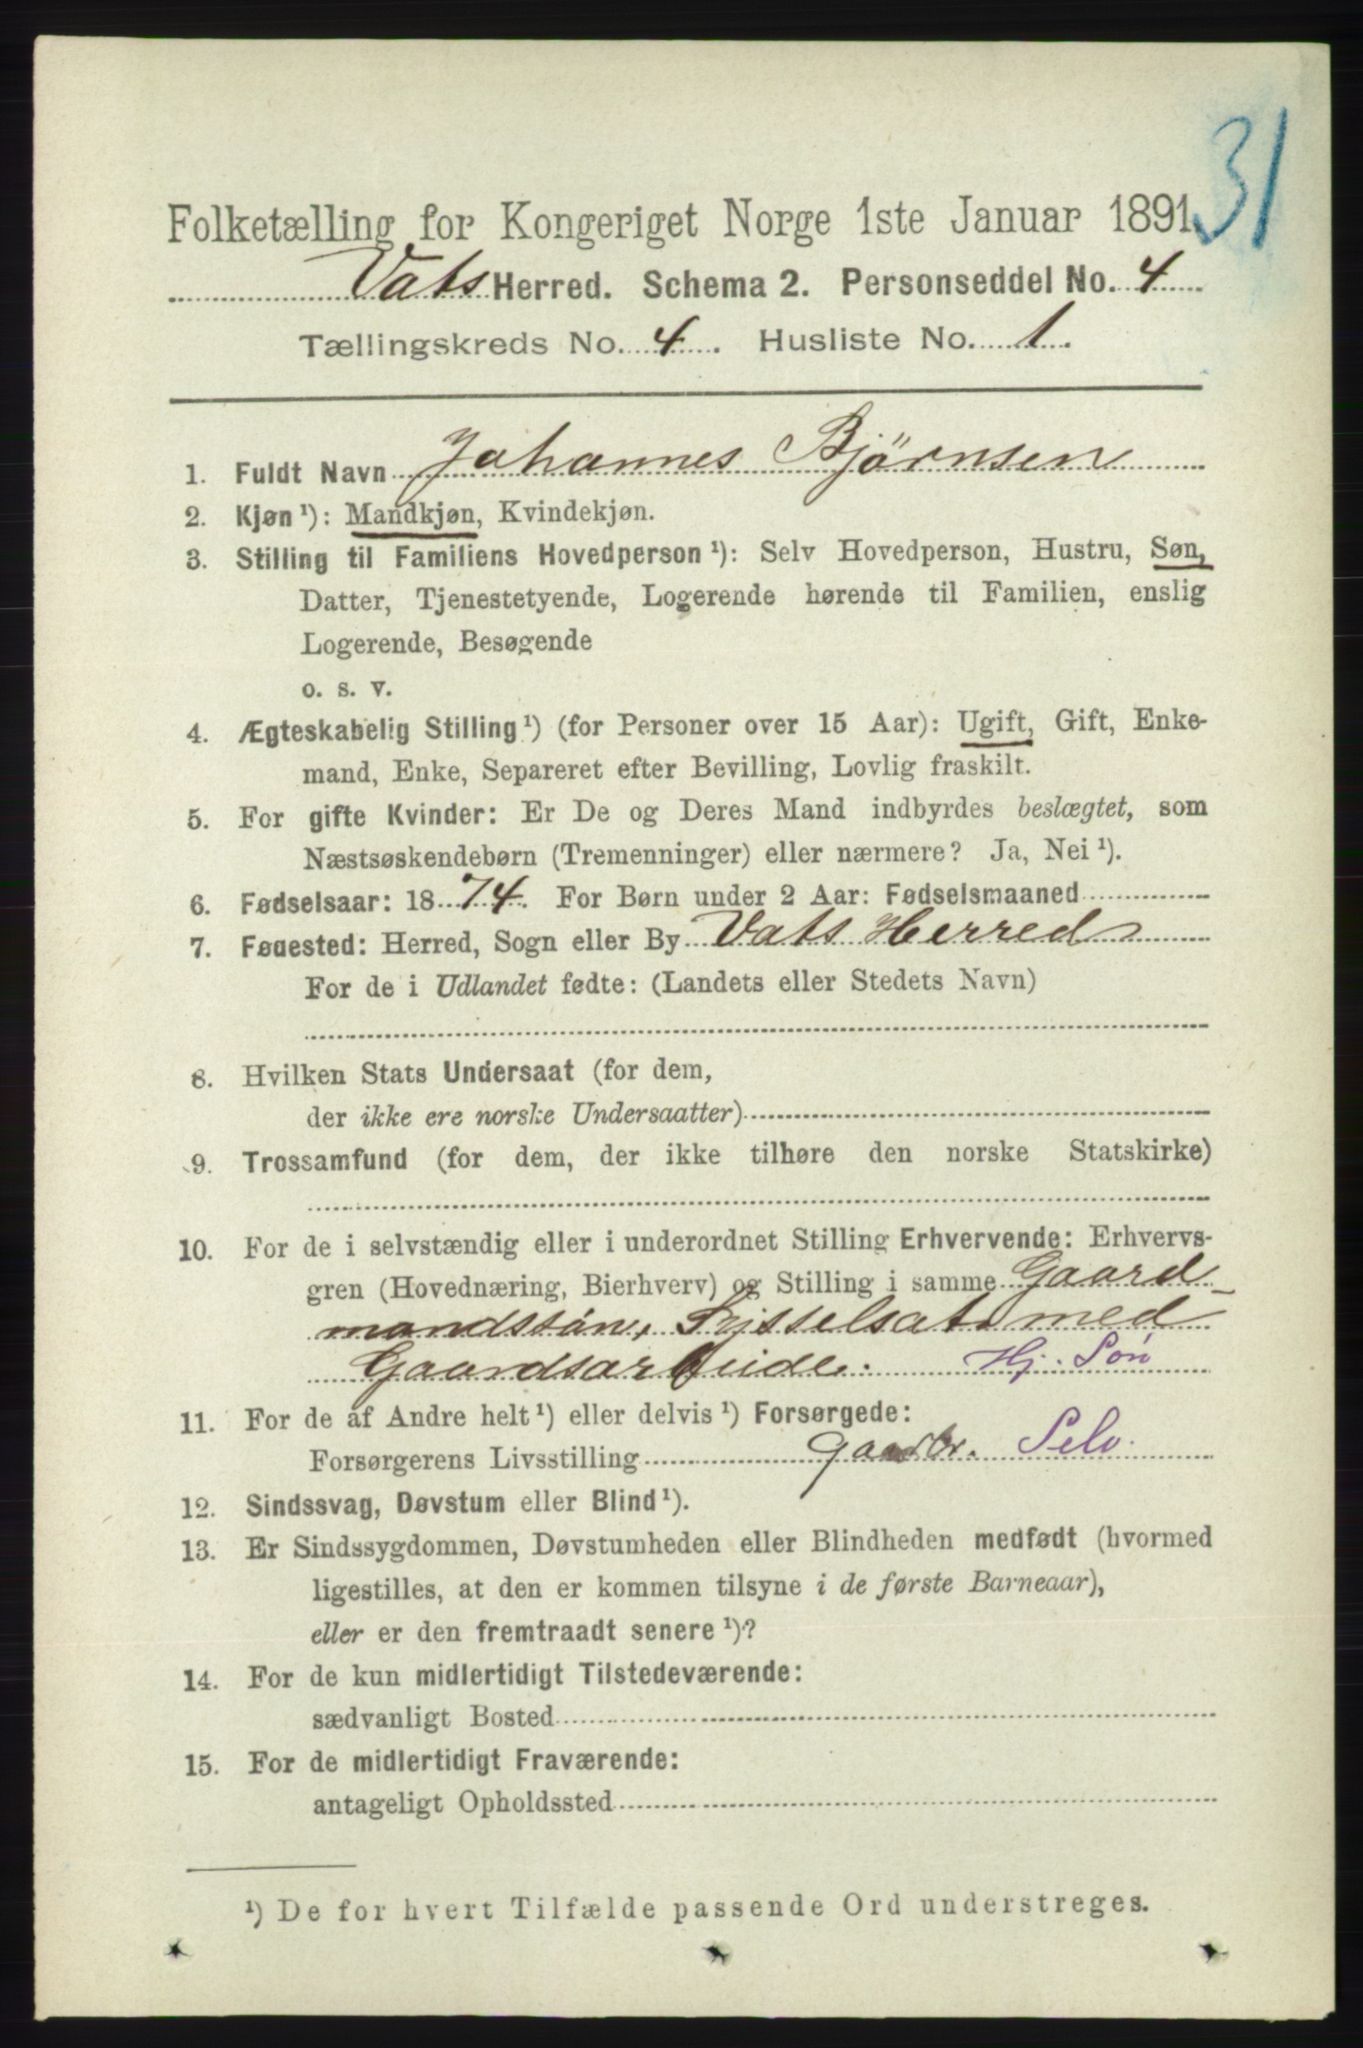 31
Folketælling for Kongeriget Norge 1ste Januar 1891.
Vats Herred. Schema 2. Personseddel No. 4
Tællingskreds No. 4. Husliste No. 1.
1. Fuldt Navn Johannes Bjørnsen
2. Kjøn ¹): Mandkjøn, Kvindekjøn.
3. Stilling til Familiens Hovedperson ¹): Selv Hovedperson, Hustru, Søn,
Datter, Tjenestetyende, Logerende hørende til Familien, enslig
Logerende, Besøgende
o. s. v.
4. Ægteskabelig Stilling ¹) (for Personer over 15 Aar): Ugift, Gift, Enke-
mand, Enke, Separeret efter Bevilling, Lovlig fraskilt.
5. For gifte Kvinder: Er De og Deres Mand indbyrdes beslægtet, som
Næstsøskendebørn (Tremenninger) eller nærmere? Ja, Nei ¹).
6. Fødselsaar: 1874. For Børn under 2 Aar: Fødselsmaaned
7. Fødested: Herred, Sogn eller By Vats Herred
For de i Udlandet fødte: (Landets eller Stedets Navn)
8. Hvilken Stats Undersaat (for dem,
der ikke ere norske Undersaatter)
9. Trossamfund (for dem, der ikke tilhøre den norske Statskirke)
10. For de i selvstændig eller i underordnet Stilling Erhvervende: Erhvervs-
gren (Hovednæring, Bierhverv) og Stilling i samme Gaard-
mandssøn, Sysselsat med
Gaardsarbeide. Hj. Søn
11. For de af Andre helt ¹) eller delvis ¹) Forsørgede:
Forsørgerens Livsstilling Gaardbr. Selv.
12. Sindssvag, Døvstum eller Blind ¹).
13. Er Sindssygdommen, Døvstumheden eller Blindheden medfødt (hvormed
ligestilles, at den er kommen tilsyne i de første Barneaar),
eller er den fremtraadt senere ¹)?
14. For de kun midlertidigt Tilstedeværende:
sædvanligt Bosted
15. For de midlertidigt Fraværende:
antageligt Opholdssted
¹) De for hvert Tilfælde passende Ord understreges.